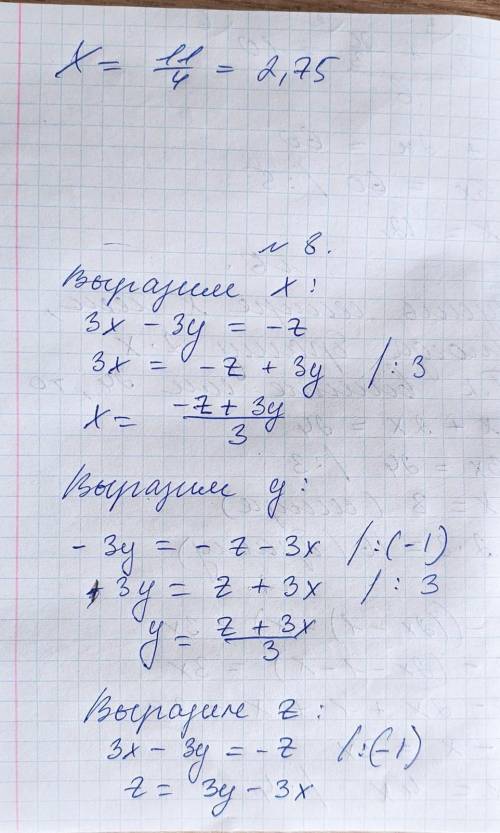 X = 11/4 = 2,75
№ 8.
Выразим x:
3x - 3y = -z
3x = -z + 3y /: 3
x = (-z + 3y)/3
Выразим y:
- 3y = - z - 3x /:(-1)
3y = z + 3x /: 3
y = (z + 3x)/3
Выразим z:
3x - 3y = -z /:(-1)
z = 3y - 3x